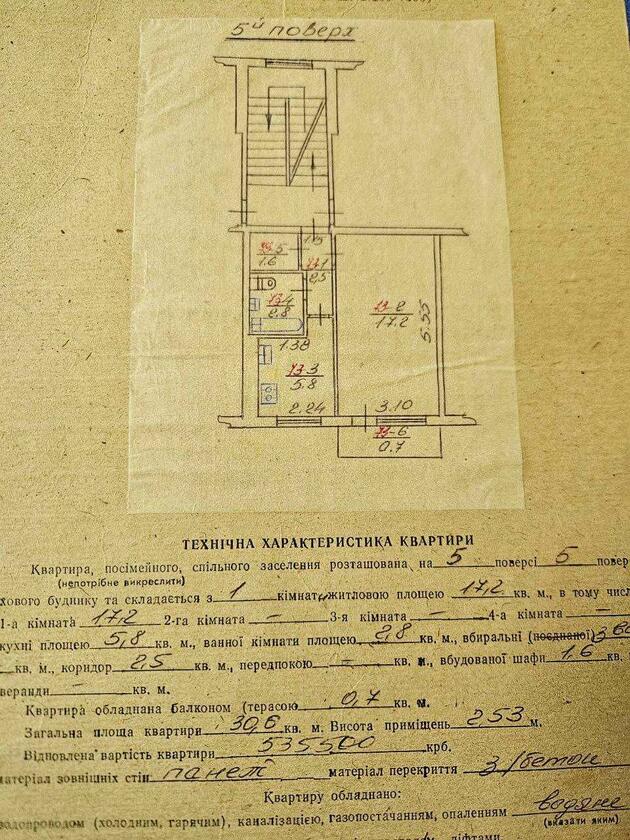 5й поверх
73-5
1.6
1.5
73-1
2.5
73-4
2.8
73-2
17.2
5.55
1.38
73-3
5.8
2.24
3.10
73-6
0.7
ТЕХНІЧНА ХАРАКТЕРИСТИКА КВАРТИРИ
Квартира, посімейного, спільного заселення розташована на 5 поверсі 5 повер
(непотрібне викреслити)
хового будинку та складається з 1 кімнат, житловою площею 17,2 кв. м., в тому числ
1-а кімната 17,2 2-га кімната — 3-я кімната — 4-а кімната —
кухні площею 5,8 кв. м., ванної кімнати площею 2,8 кв. м., вбиральні (поєднаної)
— кв. м., коридор 2,5 кв. м., передпокою — кв. м., вбудованої шафи 1,6 кв.
веранди — кв. м.
Квартира обладнана балконом (терасою 0,7 кв. м.
Загальна площа квартири 30,6 кв. м. Висота приміщень 2,53 м.
Відновлена вартість квартири 535500 крб.
матеріал зовнішніх стін панелі матеріал перекриття з/бетон
Квартиру обладнано:
водопроводом (холодним, гарячим), каналізацією, газопостачанням, опаленням водяне
(вказати яким)
ліфтами